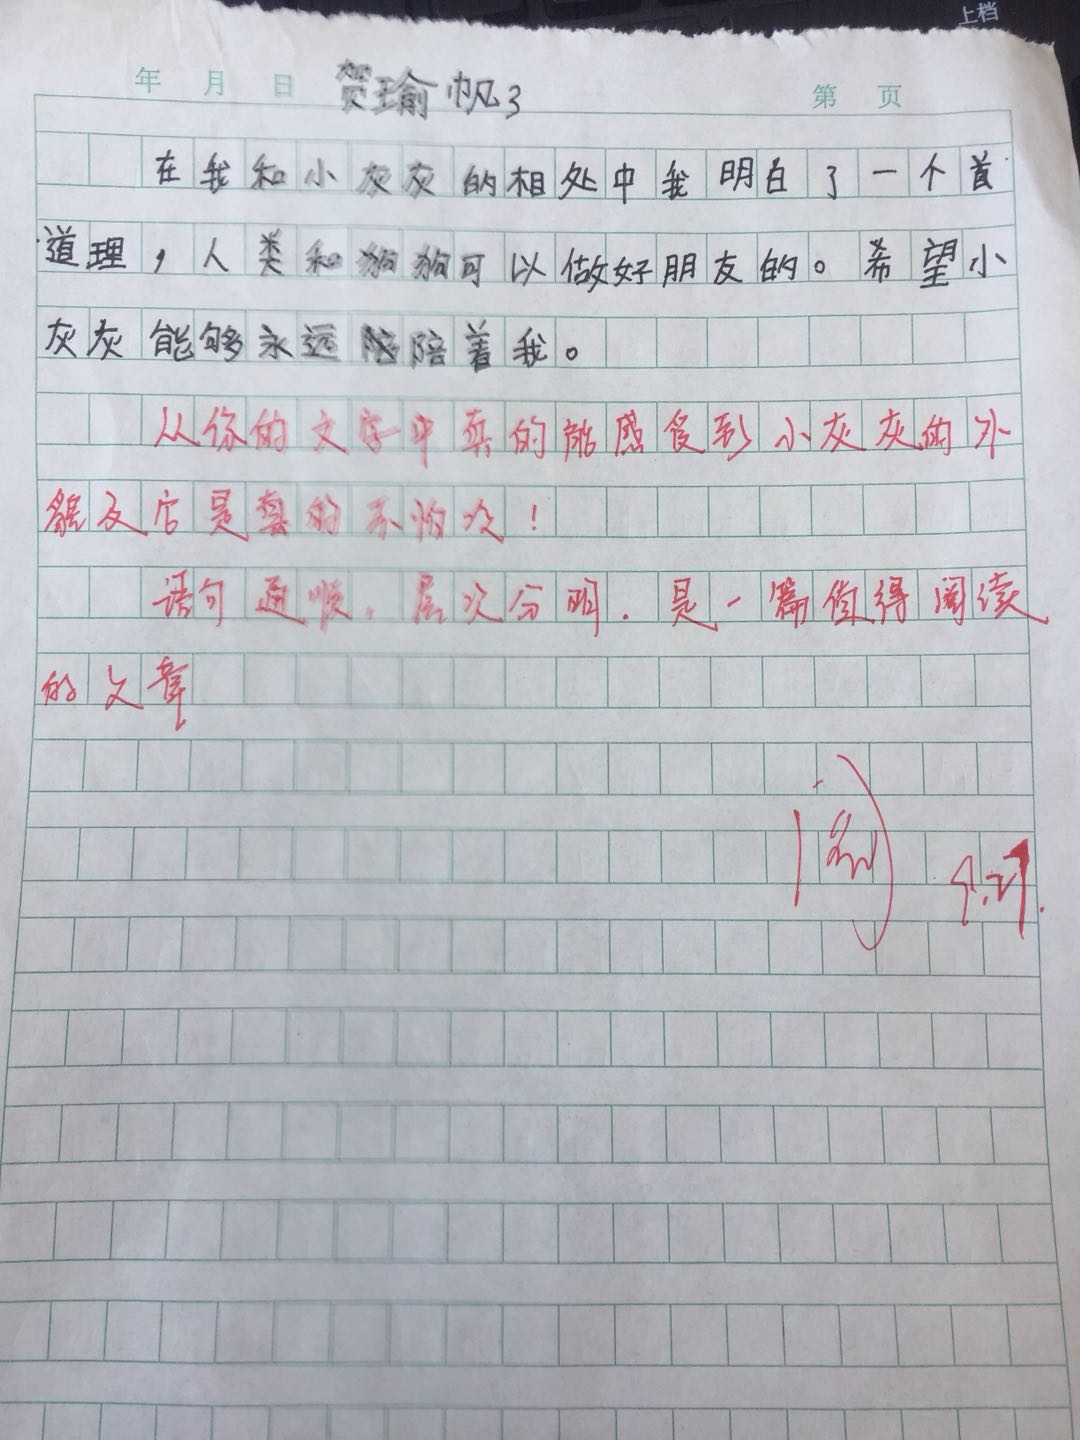 上档
年 月 日 贺瑜帆3 第 页
在我和小灰灰的相处中我明白了一个首
道理，人类和狗狗可以做好朋友的。希望小
灰灰能够永远陪陪着我。
从你的文字中真的能感食到小灰灰的外
貌及它是真的不怕次！
语句通顺，层次分明．是一篇值得阅读
的文章
阅 9.27.